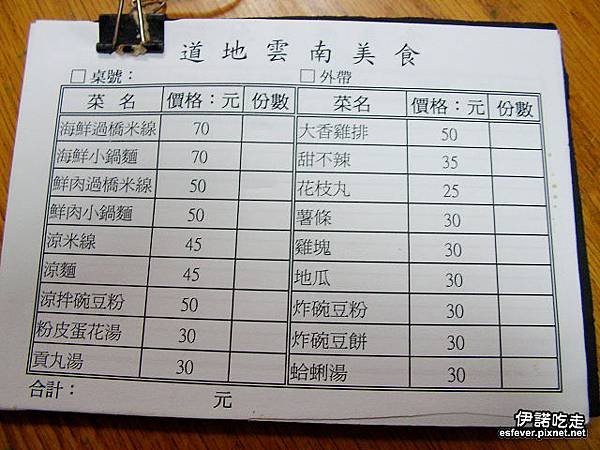 道地雲南美食
□ 桌號： □ 外帶
菜名 價格：元 份數 菜名 價格：元 份數
海鮮過橋米線 70 大香雞排 50
海鮮小鍋麵 70 甜不辣 35
鮮肉過橋米線 50 花枝丸 25
鮮肉小鍋麵 50 薯條 30
涼米線 45 雞塊 30
涼麵 45 地瓜 30
涼拌碗豆粉 50 炸碗豆粉 30
粉皮蛋花湯 30 炸碗豆餅 30
貢丸湯 30 蛤蜊湯 30
合計： 元
伊諾吃走
esfever.pixnet.net